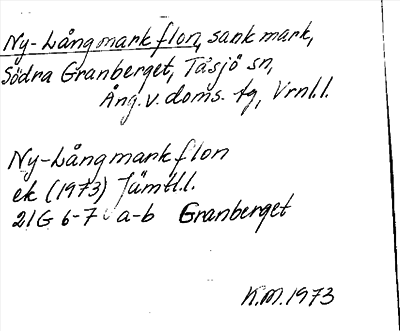 Ny-Långmarkflon, sank mark,
Södra Granberget, Tåsjö sn,
Ång. v. doms. tg, Vrnl.l.
Ny-Långmarkflon
ek (1973) Jämtl.l.
21G 6-7 a-b Granberget
K.M. 1973